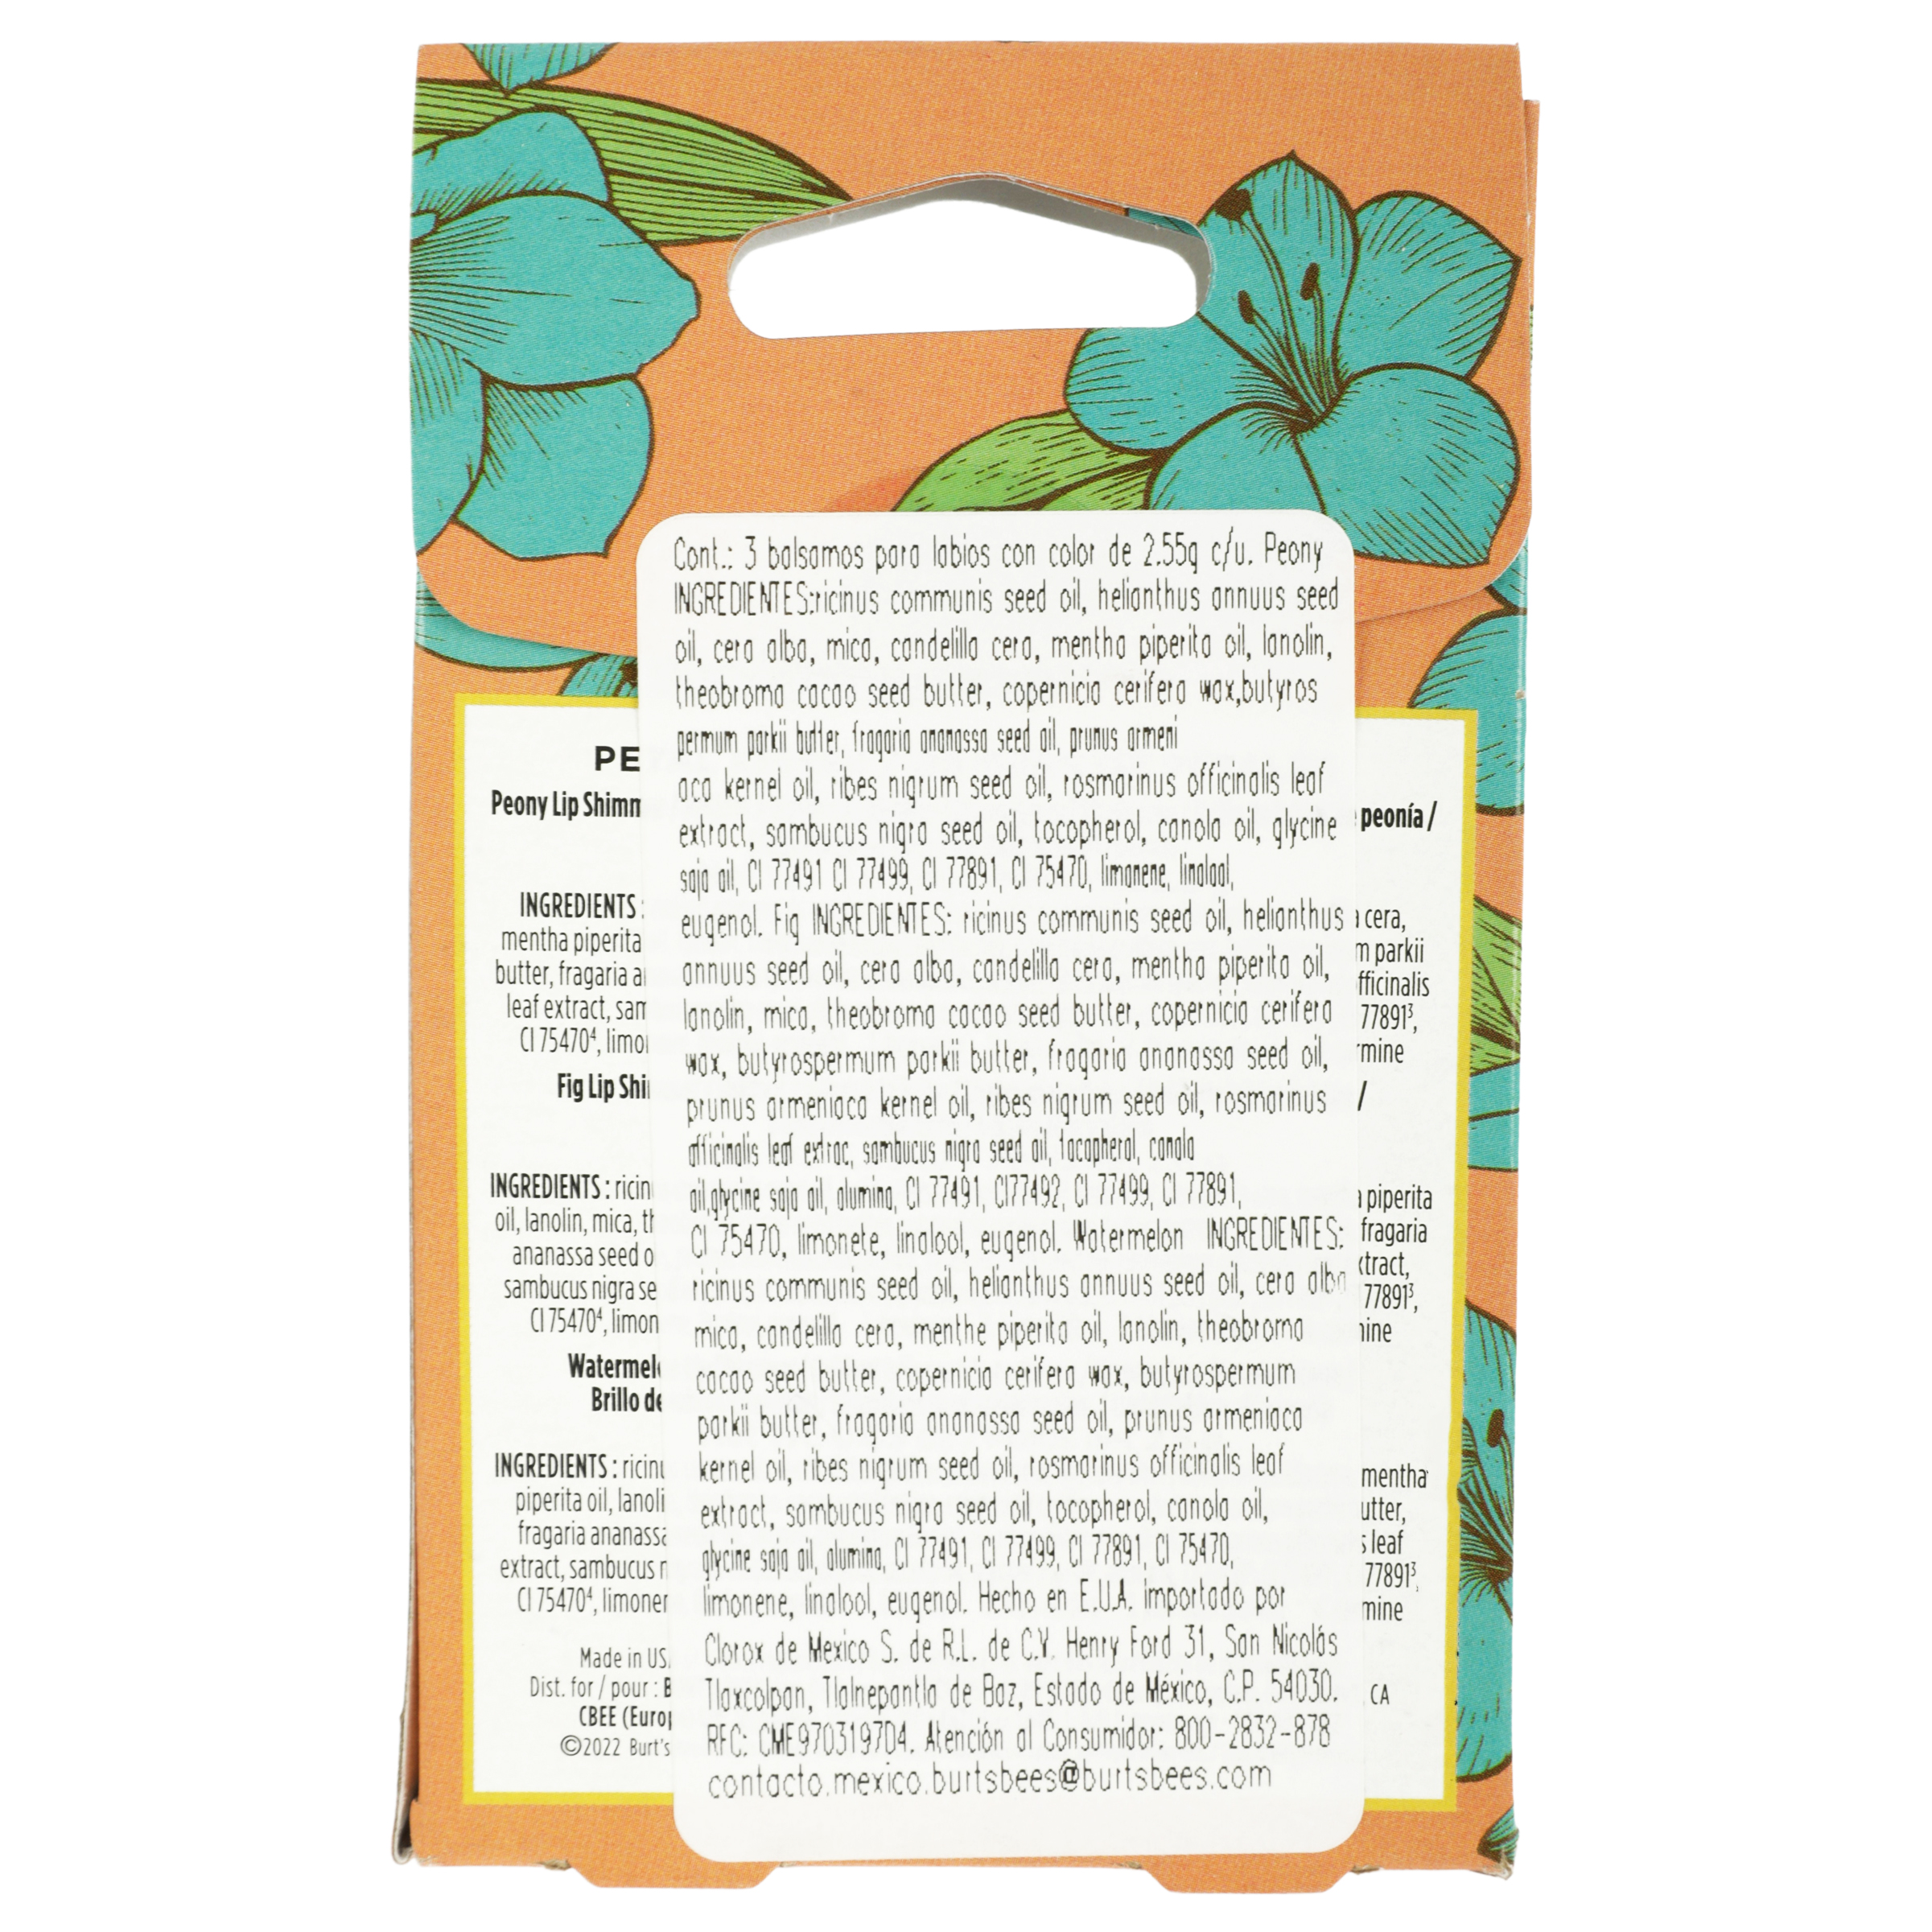 Cont.: 3 balsamos para labios con color de 2.55g c/u. Peony
INGREDIENTES:ricinus communis seed oil, helianthus annuus seed
oil, cera alba, mica, candelilla cera, mentha piperita oil, lanolin,
theobroma cacao seed butter, copernicia cerifera wax,butyros
permum parkii butter, fragaria ananassa seed oil, prunus armeni
aca kernel oil, ribes nigrum seed oil, rosmarinus officinalis leaf
extract, sambucus nigra seed oil, tocopherol, canola oil, glycine
soja oil, CI 77491 CI 77499, CI 77891, CI 75470, limonene, linalool,
eugenol. Fig INGREDIENTES: ricinus communis seed oil, helianthus
annuus seed oil, cera alba, candelilla cera, mentha piperita oil,
lanolin, mica, theobroma cacao seed butter, copernicia cerifera
wax, butyrospermum parkii butter, fragaria ananassa seed oil,
prunus armeniaca kernel oil, ribes nigrum seed oil, rosmarinus
officinalis leaf extrac, sambucus nigra seed oil, tocopherol, canola
oil,glycine soja oil, alumina, CI 77491, CI77492, CI 77499, CI 77891,
CI 75470, limonete, linalool, eugenol. Watermelon INGREDIENTES:
ricinus communis seed oil, helianthus annuus seed oil, cera alba
mica, candelilla cera, menthe piperita oil, lanolin, theobroma
cacao seed butter, copernicia cerifera wax, butyrospermum
parkii butter, fragaria ananassa seed oil, prunus armeniaca
kernel oil, ribes nigrum seed oil, rosmarinus officinalis leaf
extract, sambucus nigra seed oil, tocopherol, canola oil,
glycine soja oil, alumina, CI 77491, CI 77499, CI 77891, CI 75470,
limonene, linalool, eugenol. Hecho en E.U.A. importado por
Clorox de Mexico S. de R.L. de C.V. Henry Ford 31, San Nicolás
Tlaxcolpan, Tlalnepantla de Baz, Estado de México, C.P. 54030.
RFC: CME9703197D4. Atención al Consumidor: 800-2832-878
contacto.mexico.burtsbees@burtsbees.com
PE
Peony Lip Shimm
peonía /
INGREDIENTS :
mentha piperita
butter, fragaria a
leaf extract, sam
CI 75470⁴, limo
cera,
m parkii
fficinalis
77891³,
rmine
Fig Lip Shi
/
INGREDIENTS : ricin
oil, lanolin, mica, th
ananassa seed o
sambucus nigra se
CI 75470⁴, limon
piperita
fragaria
xtract,
77891³,
ine
Watermel
Brillo de
INGREDIENTS : ricinu
piperita oil, lanoli
fragaria ananassa
extract, sambucus n
CI 75470⁴, limoner
mentha
utter,
s leaf
77891³,
mine
Made in US
Dist. for / pour : B
CBEE (Europ
©2022 Burt's
, CA